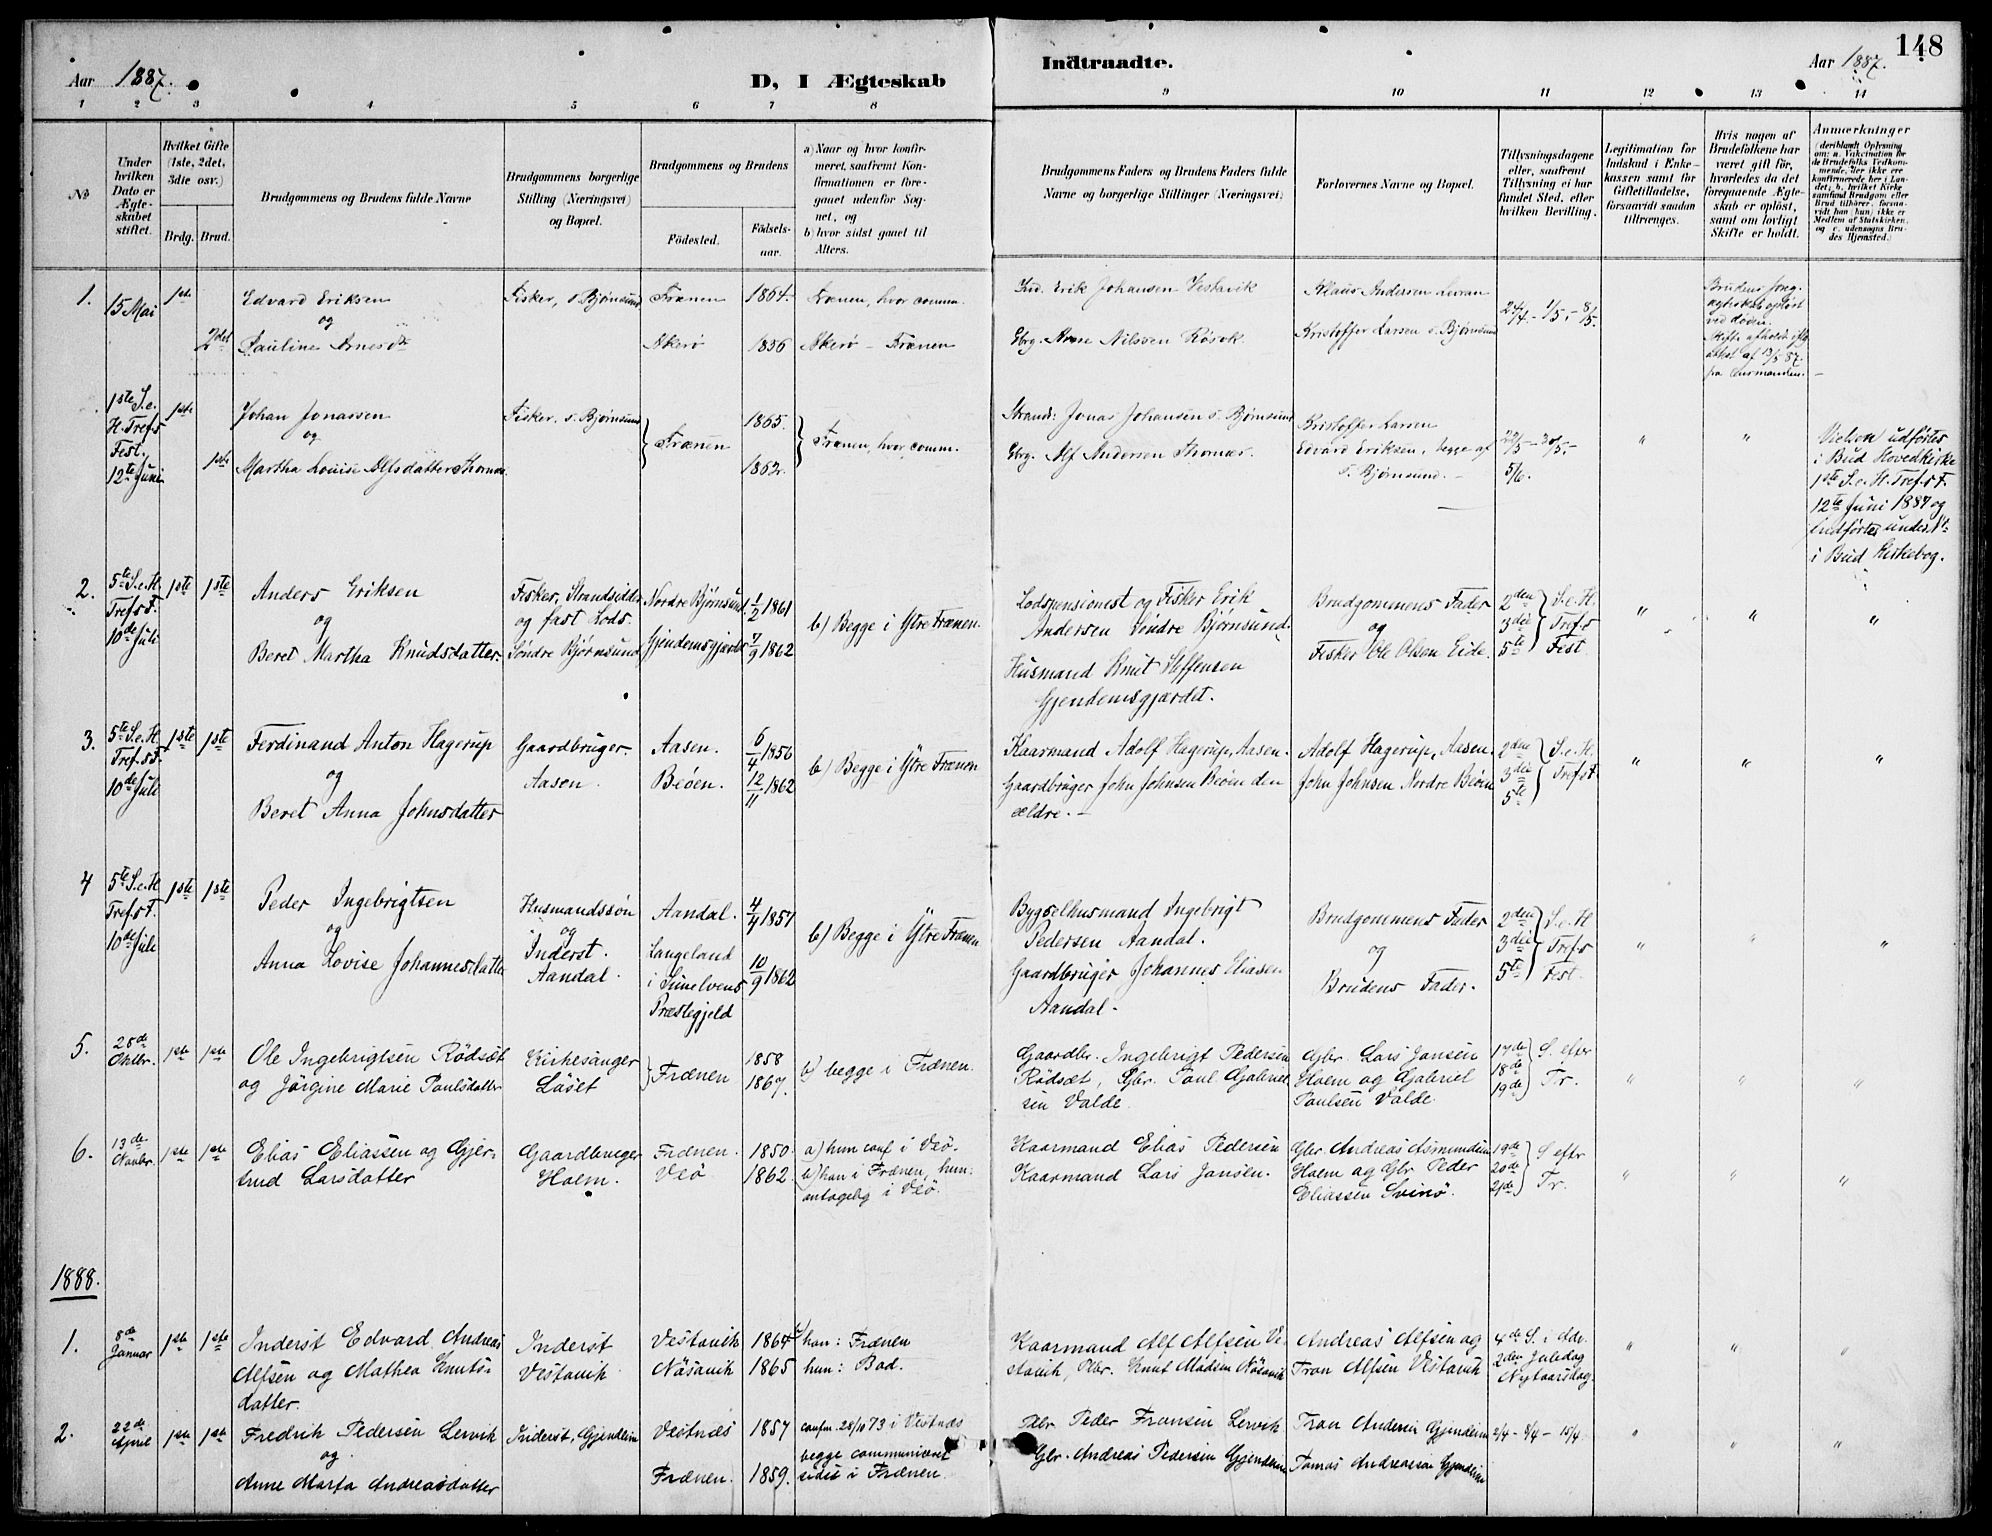 148
Aar 1887.
D, I Ægteskab
Indtraadte.
Aar 1887.
1 2 3 4 5 6 7 8 9 10 11 12 13 14
№
Under hvilken Dato er Ægteskabet stiftet.
Hvilket Gifte (1ste, 2det, 3die osv.)
Brdg. Brud.
Brudgommens og Brudens fulde Navne
Brudgommens borgerlige Stilling (Næringsvei) og Bopæl.
Brudgommens og Brudens
Födested.
Födsels-aar.
a) Naar og hvor konfirmeret, saafremt Konfirmationen er foregaaet udenfor Sognet, og
b) hvor sidst gaaet til Alters.
Brudgommens Faders og Brudens Faders fulde Navne og borgerlige Stillinger (Næringsvei)
Forlovernes Navne og Bopæl.
Tillysningsdagene eller, saafremt Tillysning ei har fundet Sted, efter hvilken Bevilling.
Legitimation for Indskud i Enkekassen samt for Giftetilladelse, forsaavidt saadan tiltrænges.
Hvis nogen af Brudefolkene har været gift för, hvorledes da det foregaaende Ægteskab er oplöst, samt om lovligt Skifte er holdt.
Anmærkninger
1. 15 Mai 1ste Edvard Eriksen Fisker, s. Bjørnsund Frænen 1864. Frænen, hvor comm.
og
2det Pauline Arnesd. Akerö 1856 Akerö – Frænen
Erik Johansen Vestavik Klaus Andersen 24/4 – 1/5 – 8/5.
Nilsen Kristoffer Larsen s. Bjørnsund
1ste S. e. H. Tref.s Fest. 12te Juni 1ste Johan Jonassen Fisker. s. Bjørnsund Frænen 1865. Frænen, hvor comm.
og
1ste Martha Louise Alfsdatter 1862.
Jonas Johansen s. Bjørnsund Kristoffer Larsen 22/5 – 30/5 –
Gbrg. Alf Andersen Edvard Eriksen, begge af s. Bjørnsund. 5/6.
Vielsen udførtes i Bud Hovedkirke 1ste S. e. H. Tref.s F. 12te Juni 1887 og indførtes under
i Bud Kirkebog.
2. 5te S. e. H. Tref.s F. 10de Juli 1ste 1ste Anders Eriksen Fisker, Strandsidder Nordre Bjørnsund 1/2 1861
og og fast Lods. b) Begge i Ytre Frænen.
Beret Martha Knudsdatter. Söndre Bjørnsund Gjendemsgjærdet 7/9 1862
Lodspensionist og Fisker Erik Andersen Söndre Bjørnsund. Brudgommens Fader 2den S. e. H.
og 3die Tref.s
Husmand Knut Steffensen Gjendemsgjærdet. Fisker Ole Olsen Eide. 5te Fest.
3. 5te S. e. H. Tref.s F. 10de Juli 1ste 1ste Ferdinand Anton Hagerup Gaardbruger Aasen. 6/4 1856
og Aasen. b) Begge i Ytre Frænen
Beret Anna Johnsdatter Beöen. 12/11 1862
Kaarmand Adolf Hagerup, Aasen. Adolf Hagerup, Aasen. 2den S. e. H.
Gaardbruger John Johnsen Beöen den ældre. – John Johnsen Nordre Beöen 3die 5te Tref.s F.
4 5te S. e. H. Tref.s F. 10de Juli 1ste 1ste Peder Ingebrigtsen Husmandssön Aandal. 4/9 1857
og og b) Begge i Ytre Frænen
Anna Lovise Johannesdatter Inderst. Aandal. Langeland i Sunelvens Præstegjeld 10/9 1862
Bygselhusmand Ingebrigt Pedersen Aandal. Brudgommens Fader 2den S. e. H
og 3die Tref.s
Gaardbruger Johannes Eliasen Aandal. Brudens Fader. 5te Fest.
5. Oktbr. 1ste 1ste Ole Ingebrigtsen Rödsæt Kirkesanger Frænen 1858 b) begge i Frænen.
og Jörgine Marie Paulsdatter Löset 1867.
Gaardbr. Ingebrigt Pedersen Rödsæt, Gbr. Paul Gabrielsen Valde. Gbr. Lars Jansen Hoem og Gabriel Paulsen Valde. 17de 18de 19de S. efter Tr.
6. 13de Novbr. 1ste 1ste Elias Eliassen og Gjertrud Larsdatter Gaardbruger Hoem. Frænen. 1850. a) hun conf i Veö.
Veö 1862. b) han i Frænen, hun antagelig i Veö.
Kaarmand Elias Pedersen Gbr Andreas Asmundsen 19de S efter
Kaarmand Lars Jansen. Hoem og Gbr Peder Eliassen Svinö. 20de 21de Tr.
1888.
1. 8de Januar 1ste 1ste Inderst Edvard Andreas Inderst Vestavik 1864 han: Frænen
Alfsen og Mathea Knutsdatter. Vestavik Nösavik 1865 hun: Bod.
Kaarmand Alf Alfsen Vestavik, Knut Madsen Nösavik Andreas Alfsen og Tron Alfsen Vestavik 4de S. i Adv. 2den Juledag Nytaarsdag.
2. 22de April 1ste 1ste Fredrik Pedersen Lervik Inderst, Gjendem Vestnæs 1857 confm. 28/10 73 i Vestnæs
og begge communiceret
Anne Marta Andreasdatter Frænen. 1859. sidst i Frænen.
Peder Fransen Lervik Tron Andersen Gjendem 2/4 – 8/4 – 15/4
Gbr. Andreas Pedersen Gjendem Tomas Andreassen Gjendem